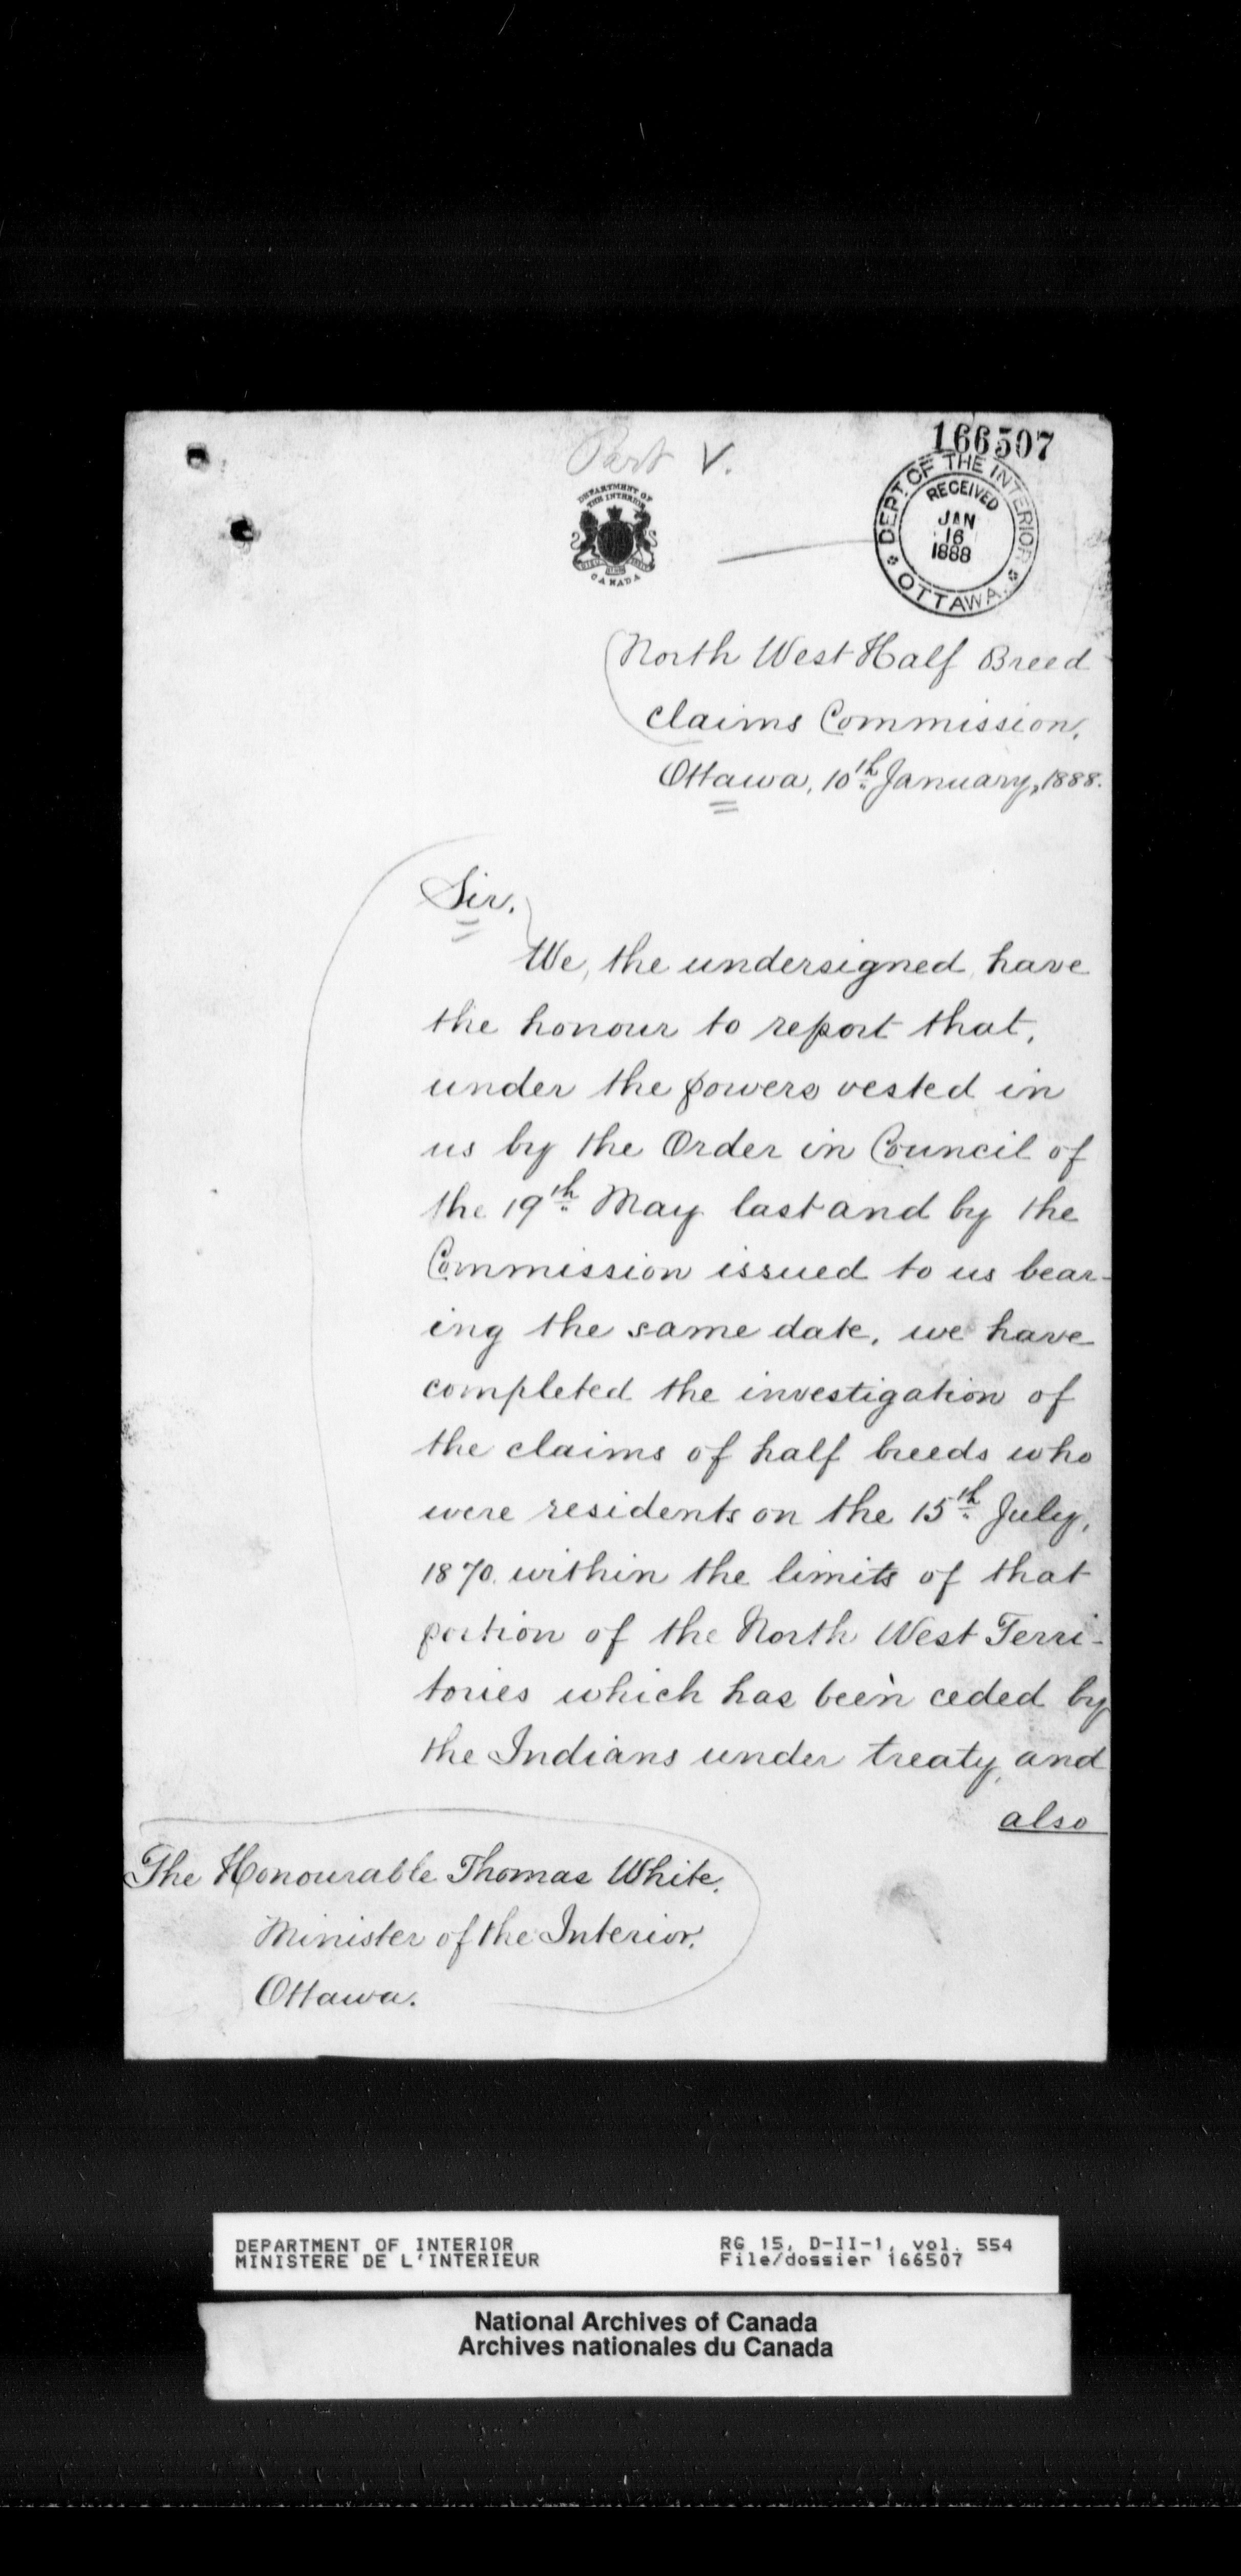 166507
Part V.
DEPARTMENT OF
THE INTERIOR
CANADA
DEPT. OF THE INTERIOR
RECEIVED
JAN
16
1888
OTTAWA
North West Half Breed
claims Commission,
Ottawa, 10th January, 1888.
Sir,
We, the undersigned, have
the honour to report that,
under the powers vested in
us by the Order in Council of
the 19th May last and by the
Commission issued to us bear-
ing the same date, we have
completed the investigation of
the claims of half breeds who
were residents on the 15th July,
1870. within the limits of that
portion of the North West Terri-
tories which has been ceded by
the Indians under treaty, and
also
The Honourable Thomas White,
Minister of the Interior,
Ottawa.
DEPARTMENT OF INTERIOR RG 15, D-II-1, vol. 554
MINISTERE DE L'INTERIEUR File/dossier 166507
National Archives of Canada
Archives nationales du Canada